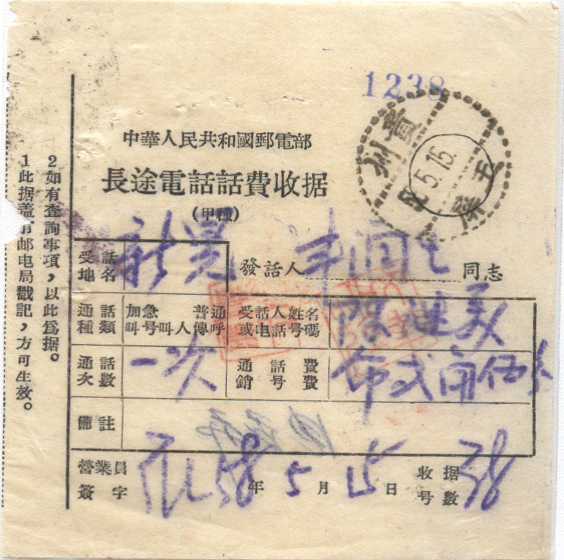 1238
中華人民共和國郵電部
長途電話話費收据
(甲種)
受話地名 新晃 發話人 同志
通話種類 加急 普通 叫号 叫人 傳呼 受話人姓名或电話号碼
通話次數 一次 通話費 銷号費
備註
營業員簽字 58年5月15日 收据号數 38
貴州
5.15.
玉屏
2如有查詢事項,以此為据。
1此据盖有邮电局戳記,方可生效。